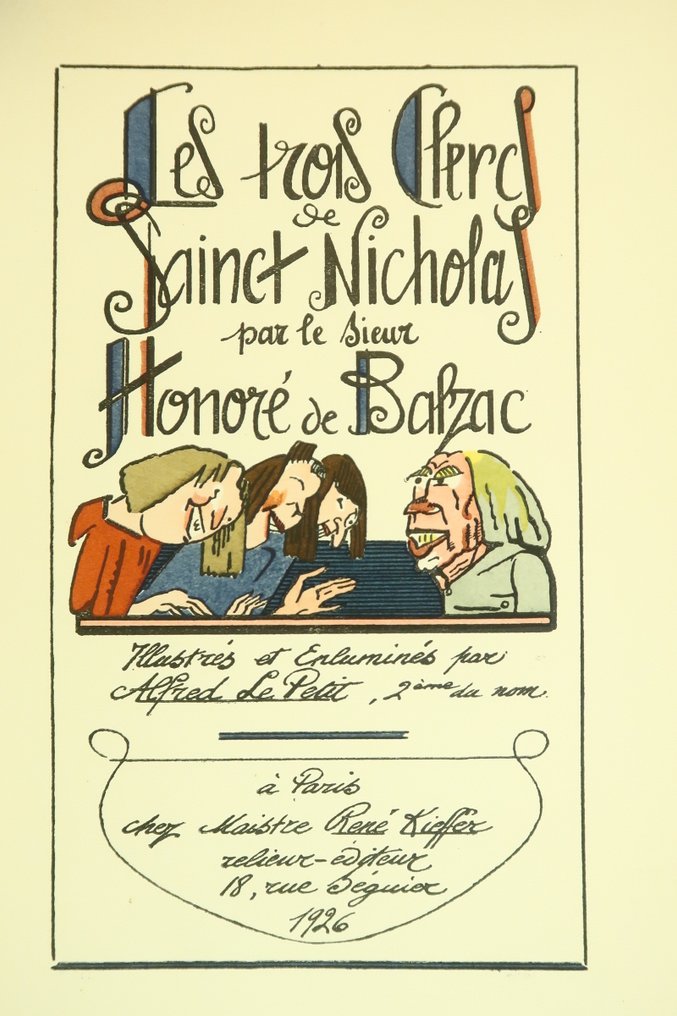 Les trois Clercs
de
Sainct Nicholas
par le Sieur
Honoré de Balzac
Illustrés et Enluminés par
Alfred Le Petit, 2ème du nom.
à Paris
chez Maistre René Kieffer
relieur-éditeur
18, rue Séguier
1926